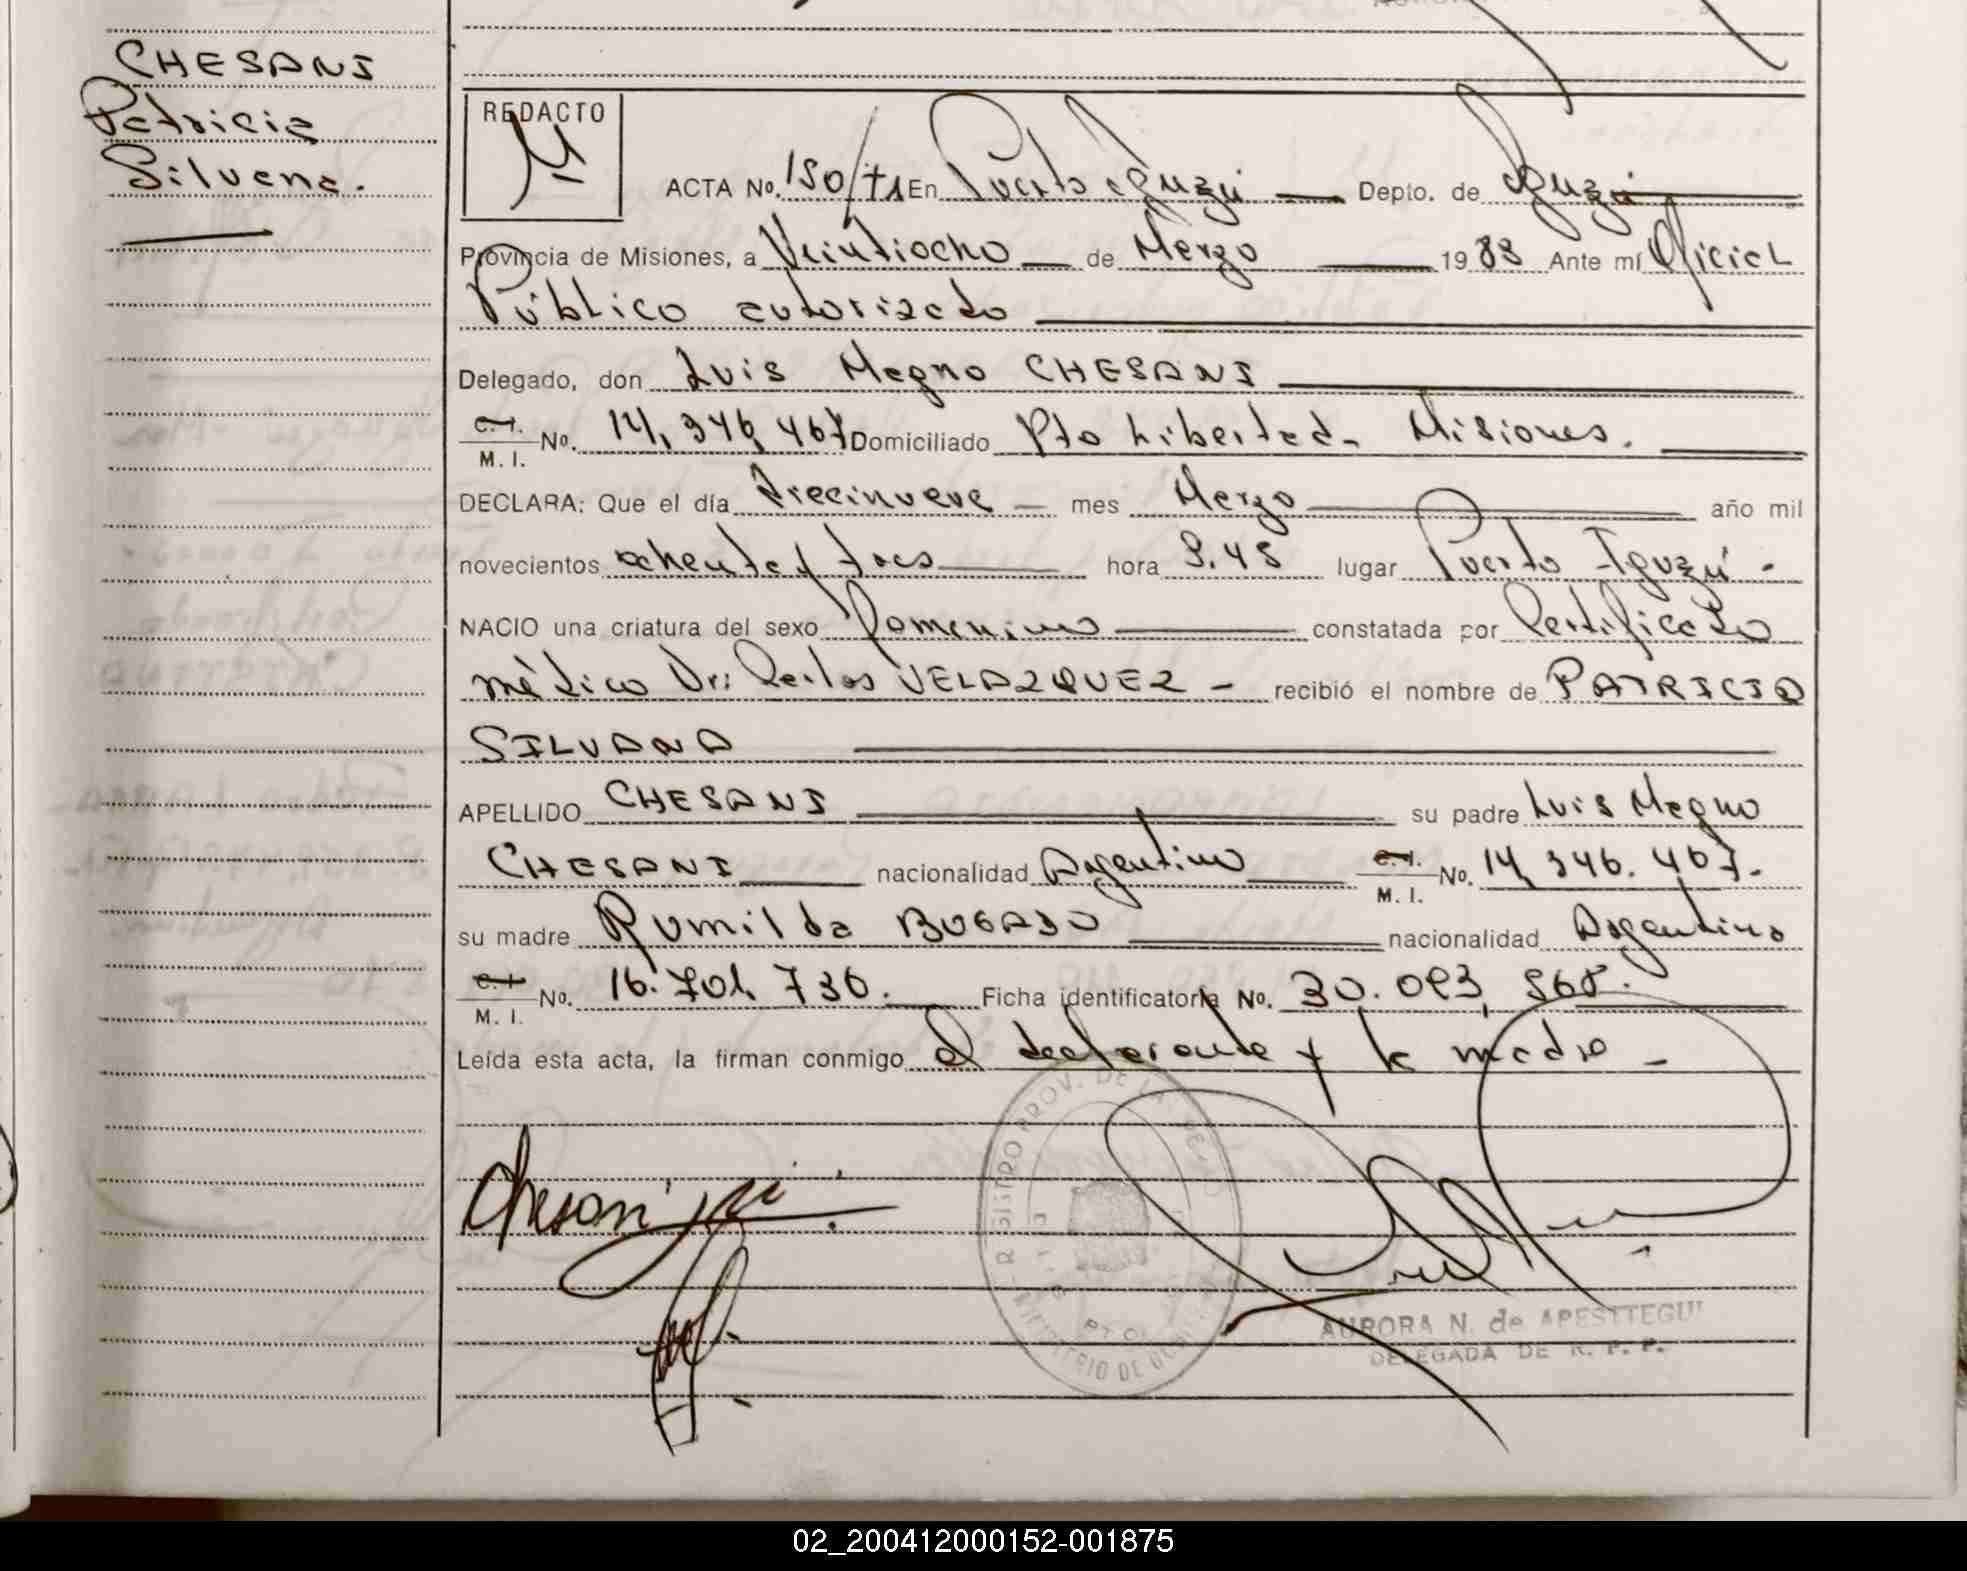 CHESANI
Patricia
Silvana.
REDACTO
ACTA No. 150/T1 En Puerto Iguazú Depto. de Iguazú
Provincia de Misiones, a Veintiocho de Marzo 1983 Ante mí Oficial
Público autorizado
Delegado, don Luis Magno CHESANI
C. I. No. 14.346.467 Domiciliado Pto Libertad - Misiones.
M. I.
DECLARA: Que el día diecinueve mes Marzo año mil
novecientos ochenta y tres hora 9.45 lugar Puerto Iguazú -
NACIO una criatura del sexo Femenino constatada por Certificado
médico Dr: Carlos VELAZQUEZ - recibió el nombre de PATRICIA
SILVANA
APELLIDO CHESANI su padre Luis Magno
CHESANI nacionalidad Argentino C. I. No. 14.346.467.
M. I.
su madre Rumilda BOGADO nacionalidad Argentina
C. I. No. 16.701.736. Ficha identificatoria No. 30.093.568.
M. I.
Leída esta acta, la firman conmigo el declarante y la madre -
Chesani
REGISTRO PROV. DE LAS PERSONAS
MINISTERIO DE GOBIERNO
AURORA N. de APESTTEGUI
DELEGADA DE R. P. P.
02_200412000152-001875